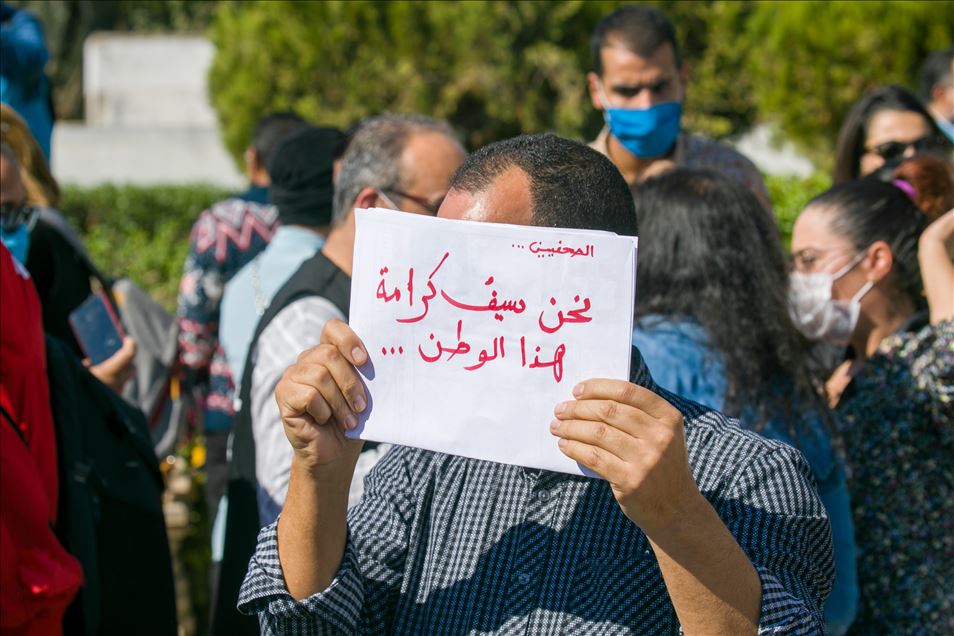 الصحفيين ...
نحن سيفُ كرامة
هذا الوطن ...